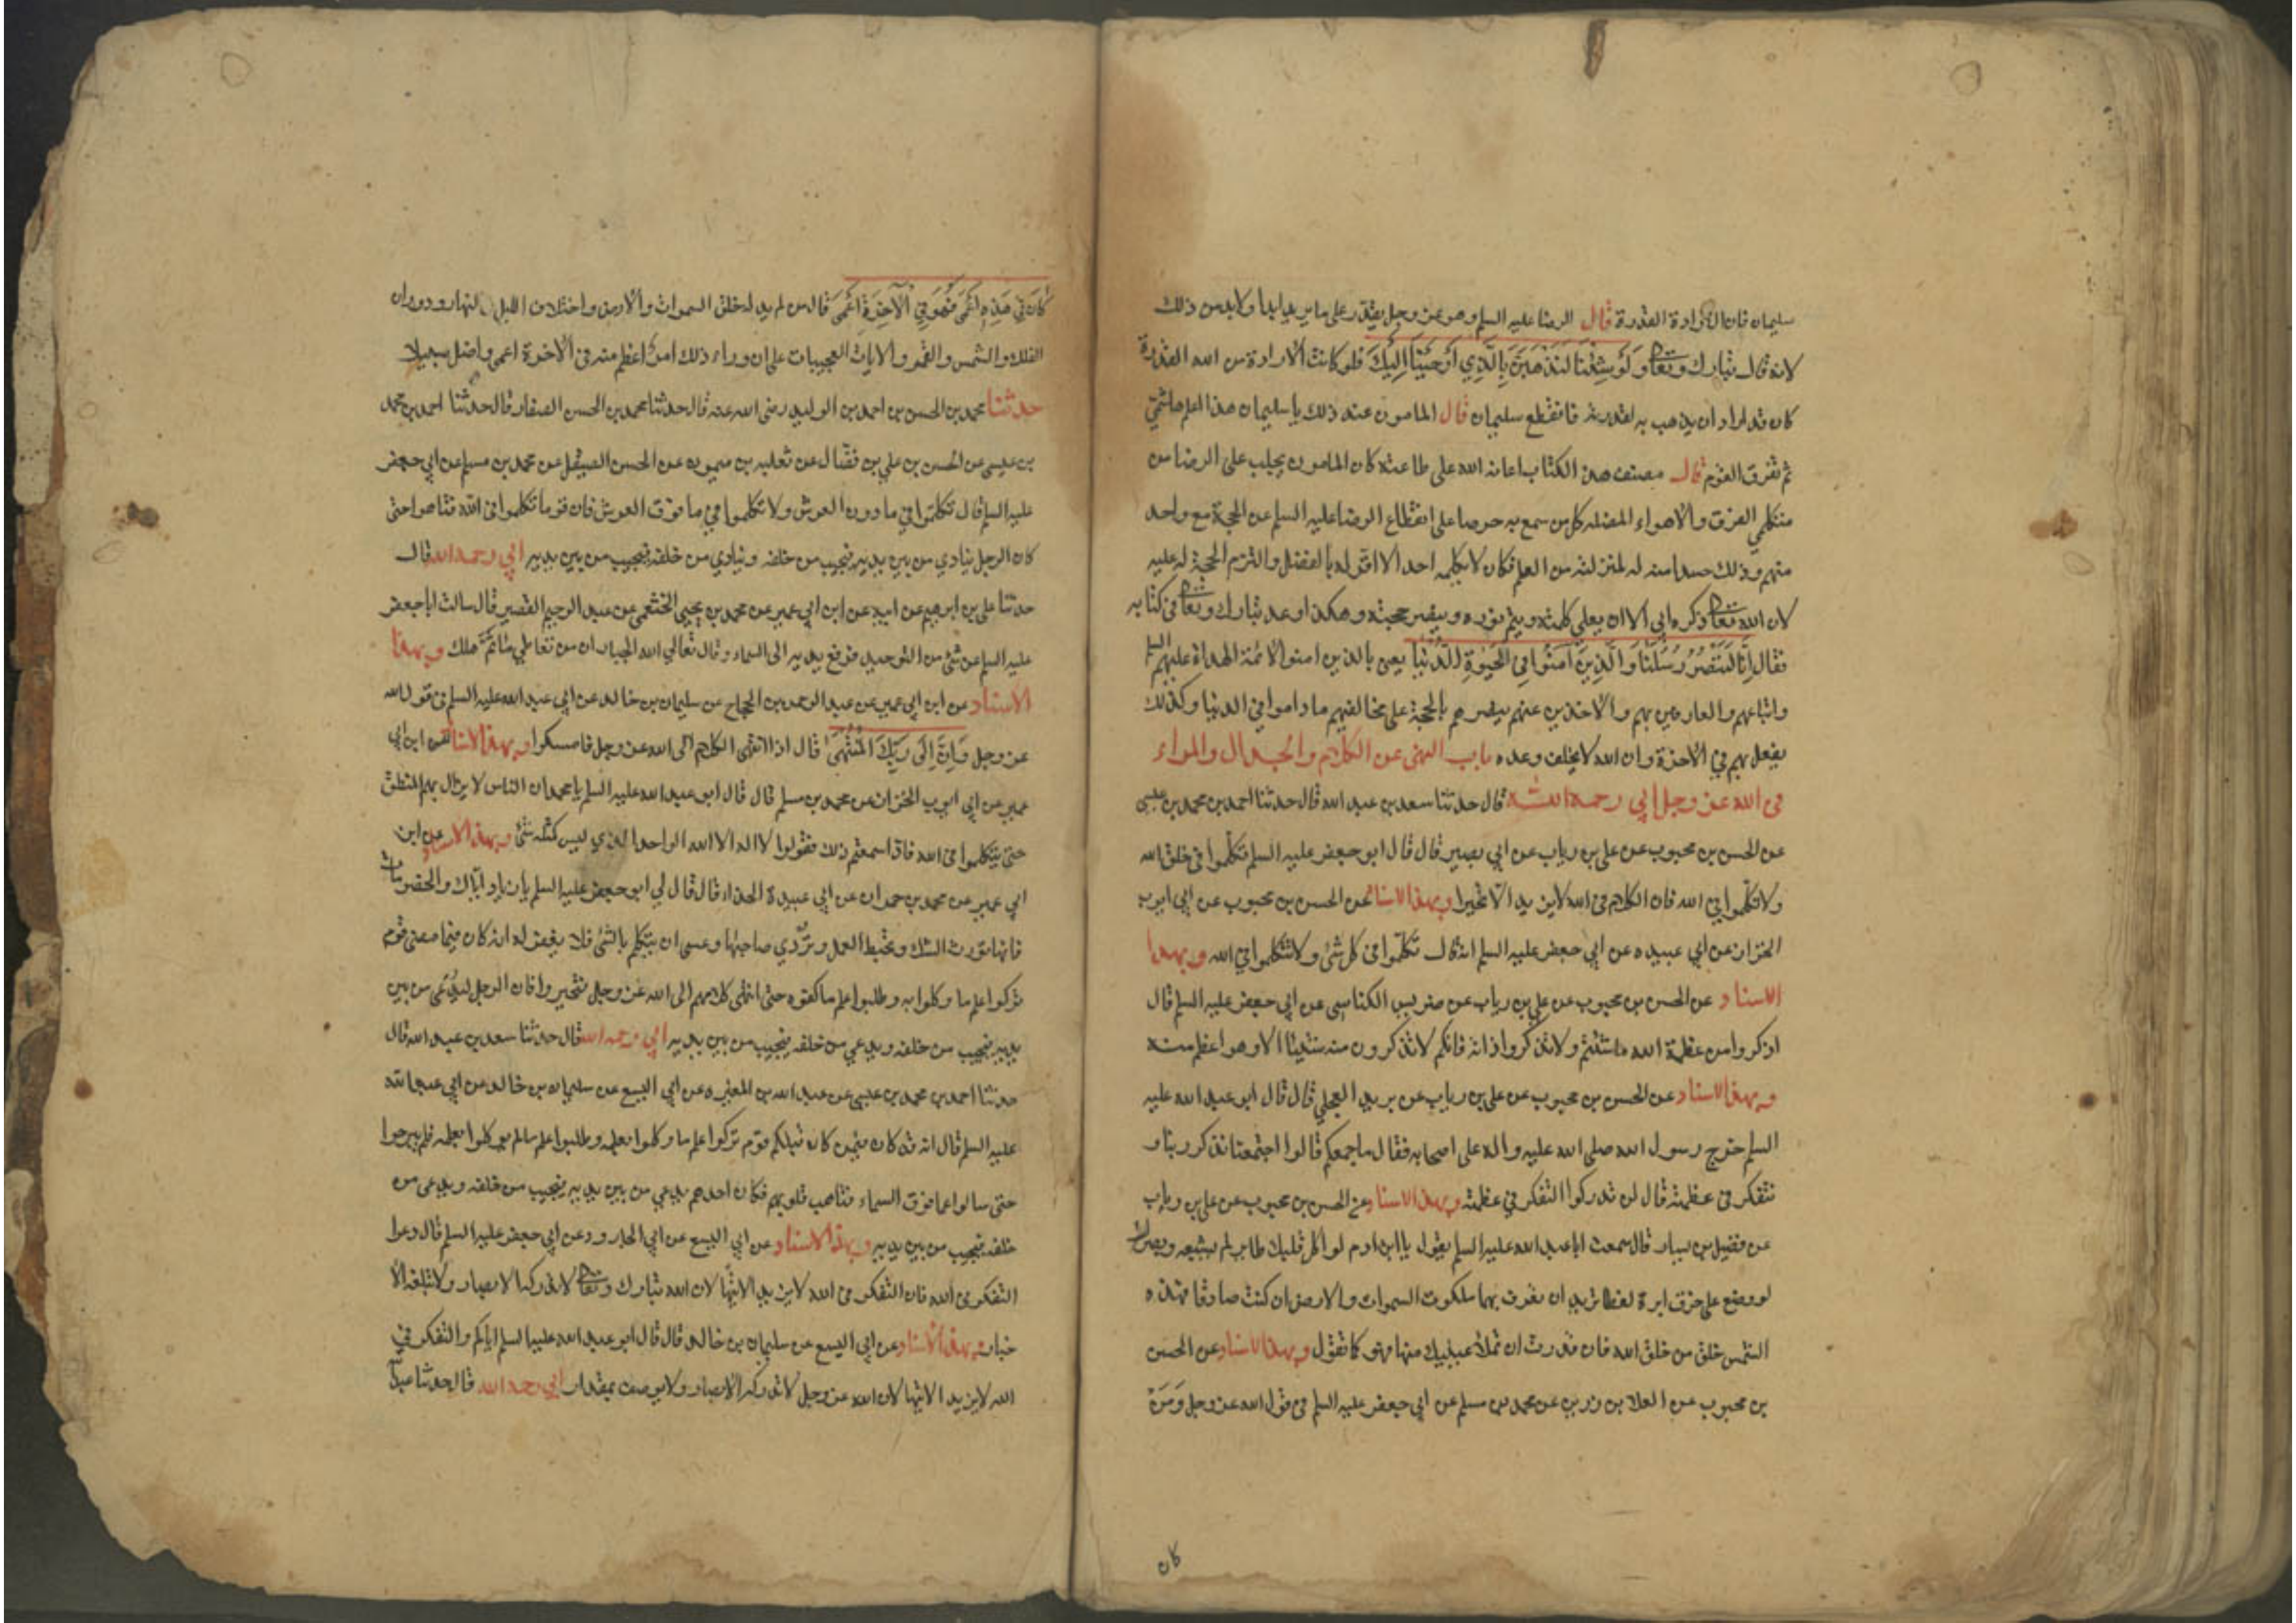 سليمان فان الارادة القدرة قال الرضا عليه السلم وهو عز وجل يقدر على ما يريد ابدا ولا بد من ذلك
لانه قال تبارك وتعا وَلَوْ شِئْنَا لَنَذْهَبَنَّ بِالَّذِي أَوْحَيْنَا إِلَيْكَ فلو كانت الارادة من الله القدرة
كان قد اراد ان يذهب به لقدرته فانقطع سليمان قال المامون عند ذلك يا سليمان هذا اعلم هاشمي
ثم تفرق القوم قال مصنف هذا الكتاب اعانه الله على طاعته كان المامون يجلب على الرضا من
متكلمي الفرق والاهواء المضله كل من سمع به حرصا على انقطاع الرضا عليه السلم عن الحجة مع واحد
منهم وذلك حسدا منه له لمنزلته من العلم فكان لا يكلمه احد الا اقر له بالفضل والتزم الحجة له عليه
لان الله تعا ذكره ابى الا ان يعلي كلمته ويتم نوره وينصر حجته وهكذا وعد تبارك وتعا في كتابه
فقال إِنَّا لَنَنْصُرُ رُسُلَنَا وَالَّذِينَ آمَنُوا فِي الْحَيٰوةِ الدُّنْيَا يعني بالذين امنوا الائمة الهداة عليهم السلم
واتباعهم والعارفين بهم والاخذين عنهم ينصرهم بالحجة على مخالفيهم ما داموا في الدنيا وكذلك
يفعل بهم في الاخرة وان الله لا يخلف وعده باب النهى عن الكلام والجدال والمراء
في الله عز وجل ابي رحمه الله قال حدثنا سعد بن عبد الله قال حدثنا احمد بن محمد بن عيسى
عن الحسن بن محبوب عن علي بن رياب عن ابي بصير قال قال ابو جعفر عليه السلم تكلموا في خلق الله
ولا تكلموا في الله فان الكلام في الله لا يزيد الا تحيرا وبهذا الاسناد عن الحسن بن محبوب عن ابي ايوب
الخزاز عن ابي عبيده عن ابي جعفر عليه السلم انه قال تكلموا في كل شئ ولا تتكلموا في الله وبهذا
الاسناد عن الحسن بن محبوب عن علي بن رياب عن ضريس الكناسي عن ابي جعفر عليه السلم قال
اذكروا من عظمة الله ما شئتم ولا تذكروا ذاته فانكم لا تذكرون منه شيئا الا وهو اعظم منه
وبهذا الاسناد عن الحسن بن محبوب عن علي بن رياب عن بريد العجلي قال قال ابو عبد الله عليه
السلم خرج رسول الله صلى الله عليه واله على اصحابه فقال ما جمعكم قالوا اجتمعنا نذكر ربنا و
نتفكر في عظمته قال لن تدركوا التفكر في عظمته وبهذا الاسناد عن الحسن بن محبوب عن علي بن رياب
عن فضيل بن يسار قال سمعت ابا عبد الله عليه السلم يقول يا ابن ادم لو اكل قلبك طاير لم يشبعه وبصرك
لو وضع على خرق ابرة لغطا تريد ان تعرف بهما ملكوت السموات والارض ان كنت صادقا فهذه
الشمس خلق من خلق الله فان قدرت ان تملأ عينيك منها فهو كما تقول وبهذا الاسناد عن الحسن
بن محبوب عن العلا بن رزين عن محمد بن مسلم عن ابي جعفر عليه السلم في قول الله عز وجل وَمَنْ
كان
كَانَ فِي هَذِهِ أَعْمَى فَهُوَ فِي الْآخِرَةِ أَعْمَى قال من لم يدله خلق السموات والارض واختلاف الليل والنهار ودوران
الفلك والشمس والقمر والايات العجيبات على ان وراء ذلك امر اعظم منه في الاخرة اعمى واضل سبيلا
حدثنا محمد بن الحسن بن احمد بن الوليد رضى الله عنه قال حدثنا محمد بن الحسن الصفار قال حدثنا احمد بن محمد
بن عيسى عن الحسن بن علي بن فضال عن ثعلبه بن ميمون عن الحسن الصيقل عن محمد بن مسلم عن ابي جعفر
عليه السلم قال تكلموا في ما دون العرش ولا تكلموا في ما فوق العرش فان قوما تكلموا في الله فتاهوا حتى
كان الرجل ينادي من بين يديه فيجيب من خلفه وينادي من خلفه فيجيب من بين يديه ابي رحمه الله قال
حدثنا علي بن ابرهيم عن ابيه عن ابن ابي عمير عن محمد بن يحيى الخثعمي عن عبد الرحيم القصير قال سالت ابا جعفر
عليه السلم عن شئ من التوحيد فرفع يديه الى السماء وقال تعالى الله الجبار ان من تعاطى ما ثَمَّ هلك وبهذا
الاسناد عن ابن ابي عمير عن عبد الرحمن بن الحجاج عن سليمان بن خالد عن ابي عبد الله عليه السلم في قول الله
عز وجل وَأَنَّ إِلَى رَبِّكَ الْمُنْتَهَى قال اذا انتهى الكلام الى الله عز وجل فامسكوا وبهذا الاسناد عن ابن ابي
عمير عن ابي ايوب الخزاز عن محمد بن مسلم قال قال ابو عبد الله عليه السلم يا محمد ان الناس لا يزال بهم المنطق
حتى يتكلموا في الله فاذا سمعتم ذلك فقولوا لا اله الا الله الواحد الذي ليس كمثله شئ وبهذا الاسناد عن ابن
ابي عمير عن محمد بن حمران عن ابي عبيدة الحذاء قال قال لي ابو جعفر عليه السلم يا زياد اياك والخصومات
فانها تورث الشك وتحبط العمل وتردي صاحبها وعسى ان يتكلم بالشئ فلا يغفر له انه كان فيما مضى قوم
تركوا علم ما وكلوا به وطلبوا علم ما كفوه حتى انتهى كلامهم الى الله عز وجل فتحيروا فان الرجل ليدعى من بين
يديه فيجيب من خلفه ويدعى من خلفه فيجيب من بين يديه ابي رحمه الله قال حدثنا سعد بن عبد الله قال
حدثنا احمد بن محمد بن عيسى عن عبد الله بن المغيره عن ابي اليسع عن سليمان بن خالد عن ابي عبد الله
عليه السلم قال انه قد كان فيمن كان قبلكم قوم تركوا علم ما وكلوا بعلمه وطلبوا علم ما لم يوكلوا بعلمه فلم يبرحوا
حتى سالوا عما فوق السماء فتاهت قلوبهم فكان احدهم يدعى من بين يديه فيجيب من خلفه ويدعى من
خلفه فيجيب من بين يديه وبهذا الاسناد عن ابي اليسع عن ابي الجارود عن ابي جعفر عليه السلم قال دعوا
التفكر في الله فان التفكر في الله لا يزيد الا تيها لان الله تبارك وتعا لا تدركه الابصار ولا تبلغه الا
خبار وبهذا الاسناد عن ابي اليسع عن سليمان بن خالد قال قال ابو عبد الله عليه السلم اياكم والتفكر في
الله لا يزيد الا تيها لان الله عز وجل لا تدركه الابصار ولا يوصف بمقدار ابي رحمه الله قال حدثنا